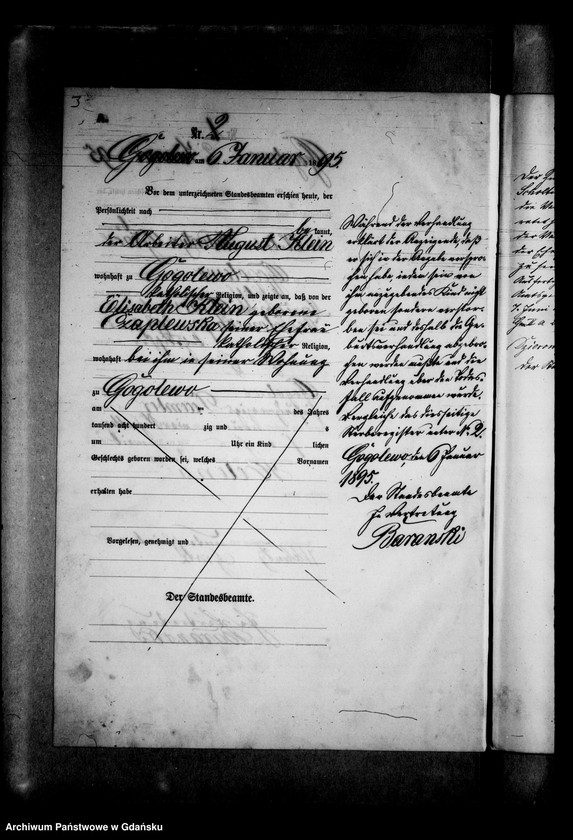 3
Nr. 2
Gogolewo am 6 Januar 1895.
Vor dem unterzeichneten Standesbeamten erschien heute, der
Persönlichkeit nach
bekannt,
der Arbeiter August Klein
wohnhaft zu Gogolewo
katholischer Religion, und zeigte an, daß von der
Elisabeth Klein geborene
Czaplewska seiner Ehefrau
katholischer Religion,
wohnhaft bei ihm in seiner Wohnung
zu Gogolewo
am ten des Jahres
tausend acht hundert zig und s
um Uhr ein Kind lichen
Geschlechts geboren worden sei, welches Vornamen
erhalten habe
Vorgelesen, genehmigt und
Der Standesbeamte.
Während der Verhandlung
erklärt der Anzeigende, daß
er sich in der Angabe verspro-
chen habe indem sein von
ihm angegebenes Kind nicht
geboren sondern verstor-
ben sei und deshalb die Ge-
burtsverhandlung abgebro-
chen werden mußte und die
Verhandlung über den Todes-
fall aufgenommen wurde.
Vergleiche das diesseitige
Sterberegister unter No 2.
Gogolewo, den 6 Januar
1895.
Der Standesbeamte
In Vertretung
Baranski
Archiwum Państwowe w Gdańsku